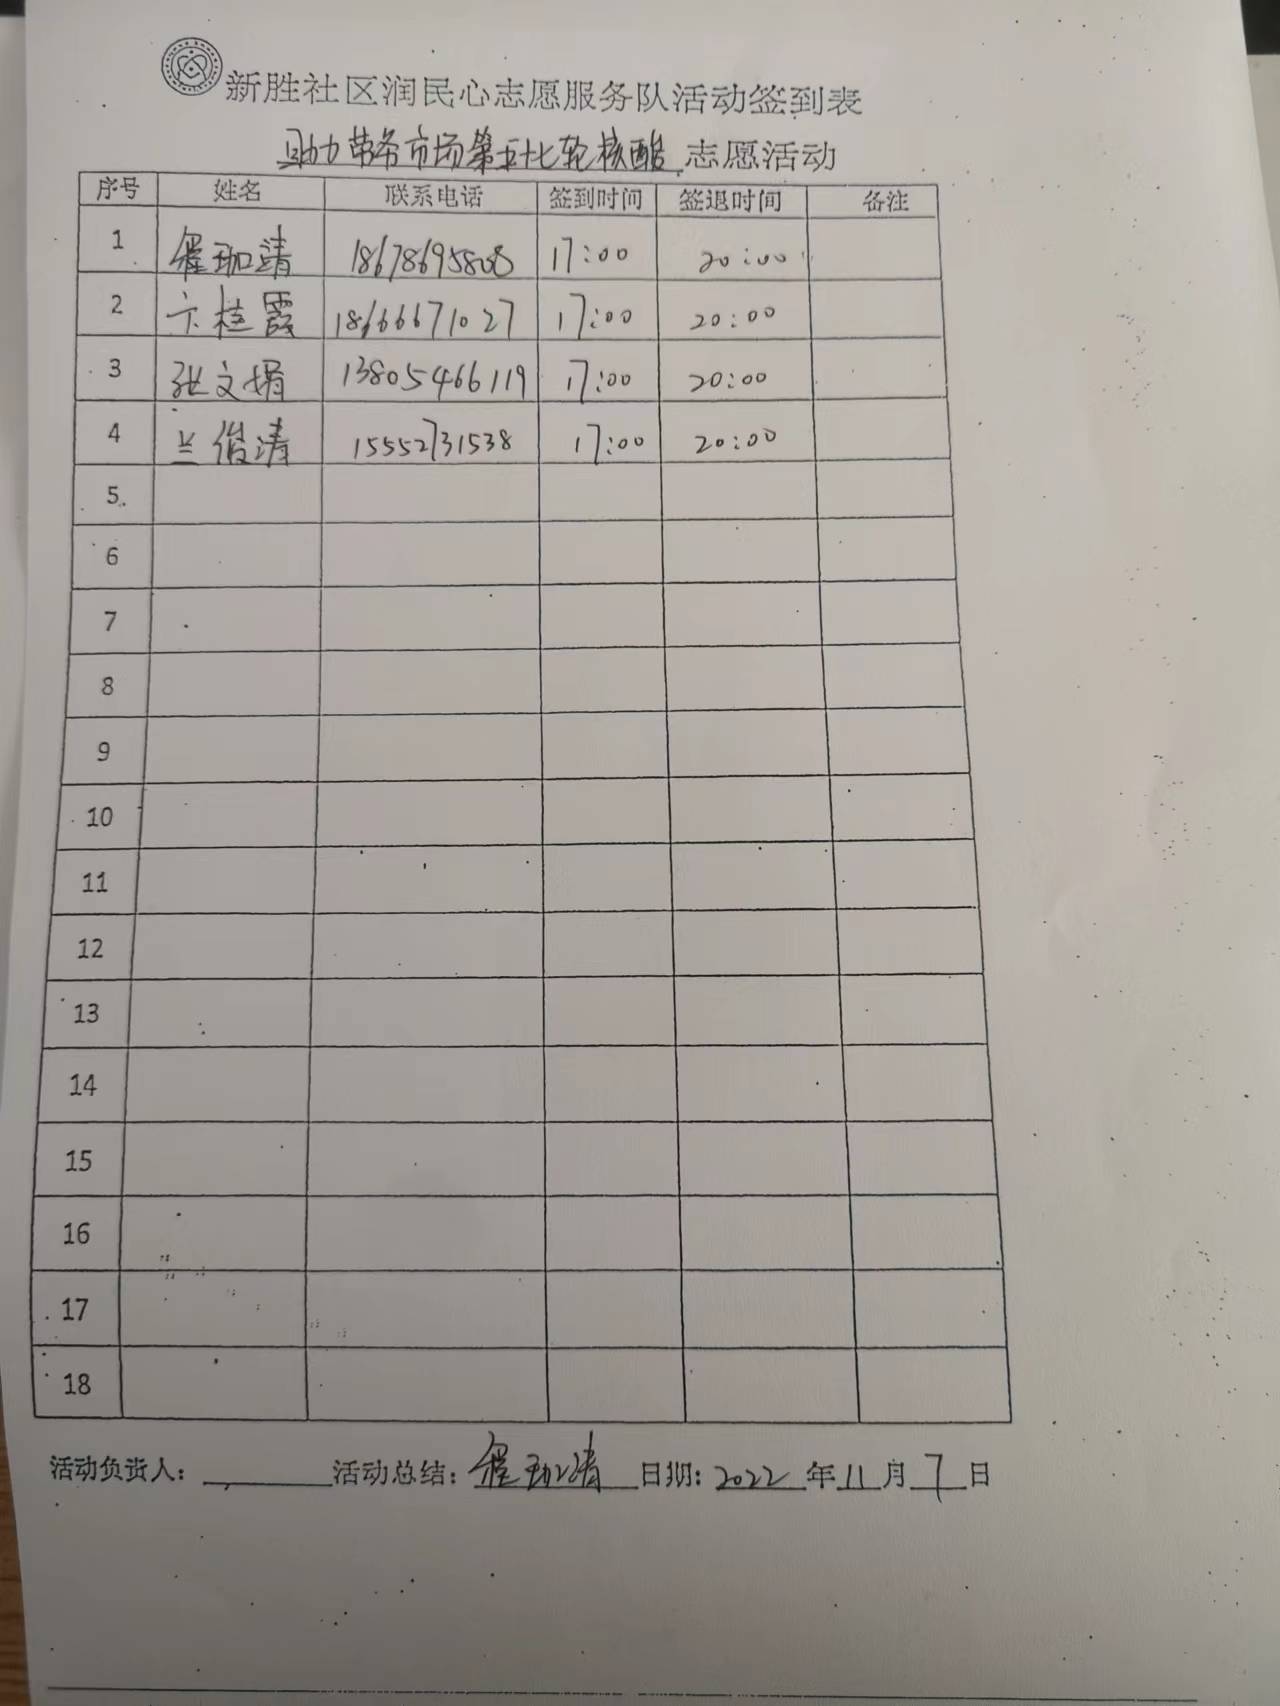 新胜社区润民心志愿服务队活动签到表
助力劳务市场第五十七轮核酸 志愿活动
序号 姓名 联系电话 签到时间 签退时间 备注
1 珈清 18678695808 17:00 20:00
2 卞桂霞 18666671027 17:00 20:00
3 张文娟 13805466119 17:00 20:00
4 兰俊清 15552731538 17:00 20:00
5
6
7
8
9
10
11
12
13
14
15
16
17
18
活动负责人: 活动总结: 珈清 日期: 2022 年 11 月 7 日